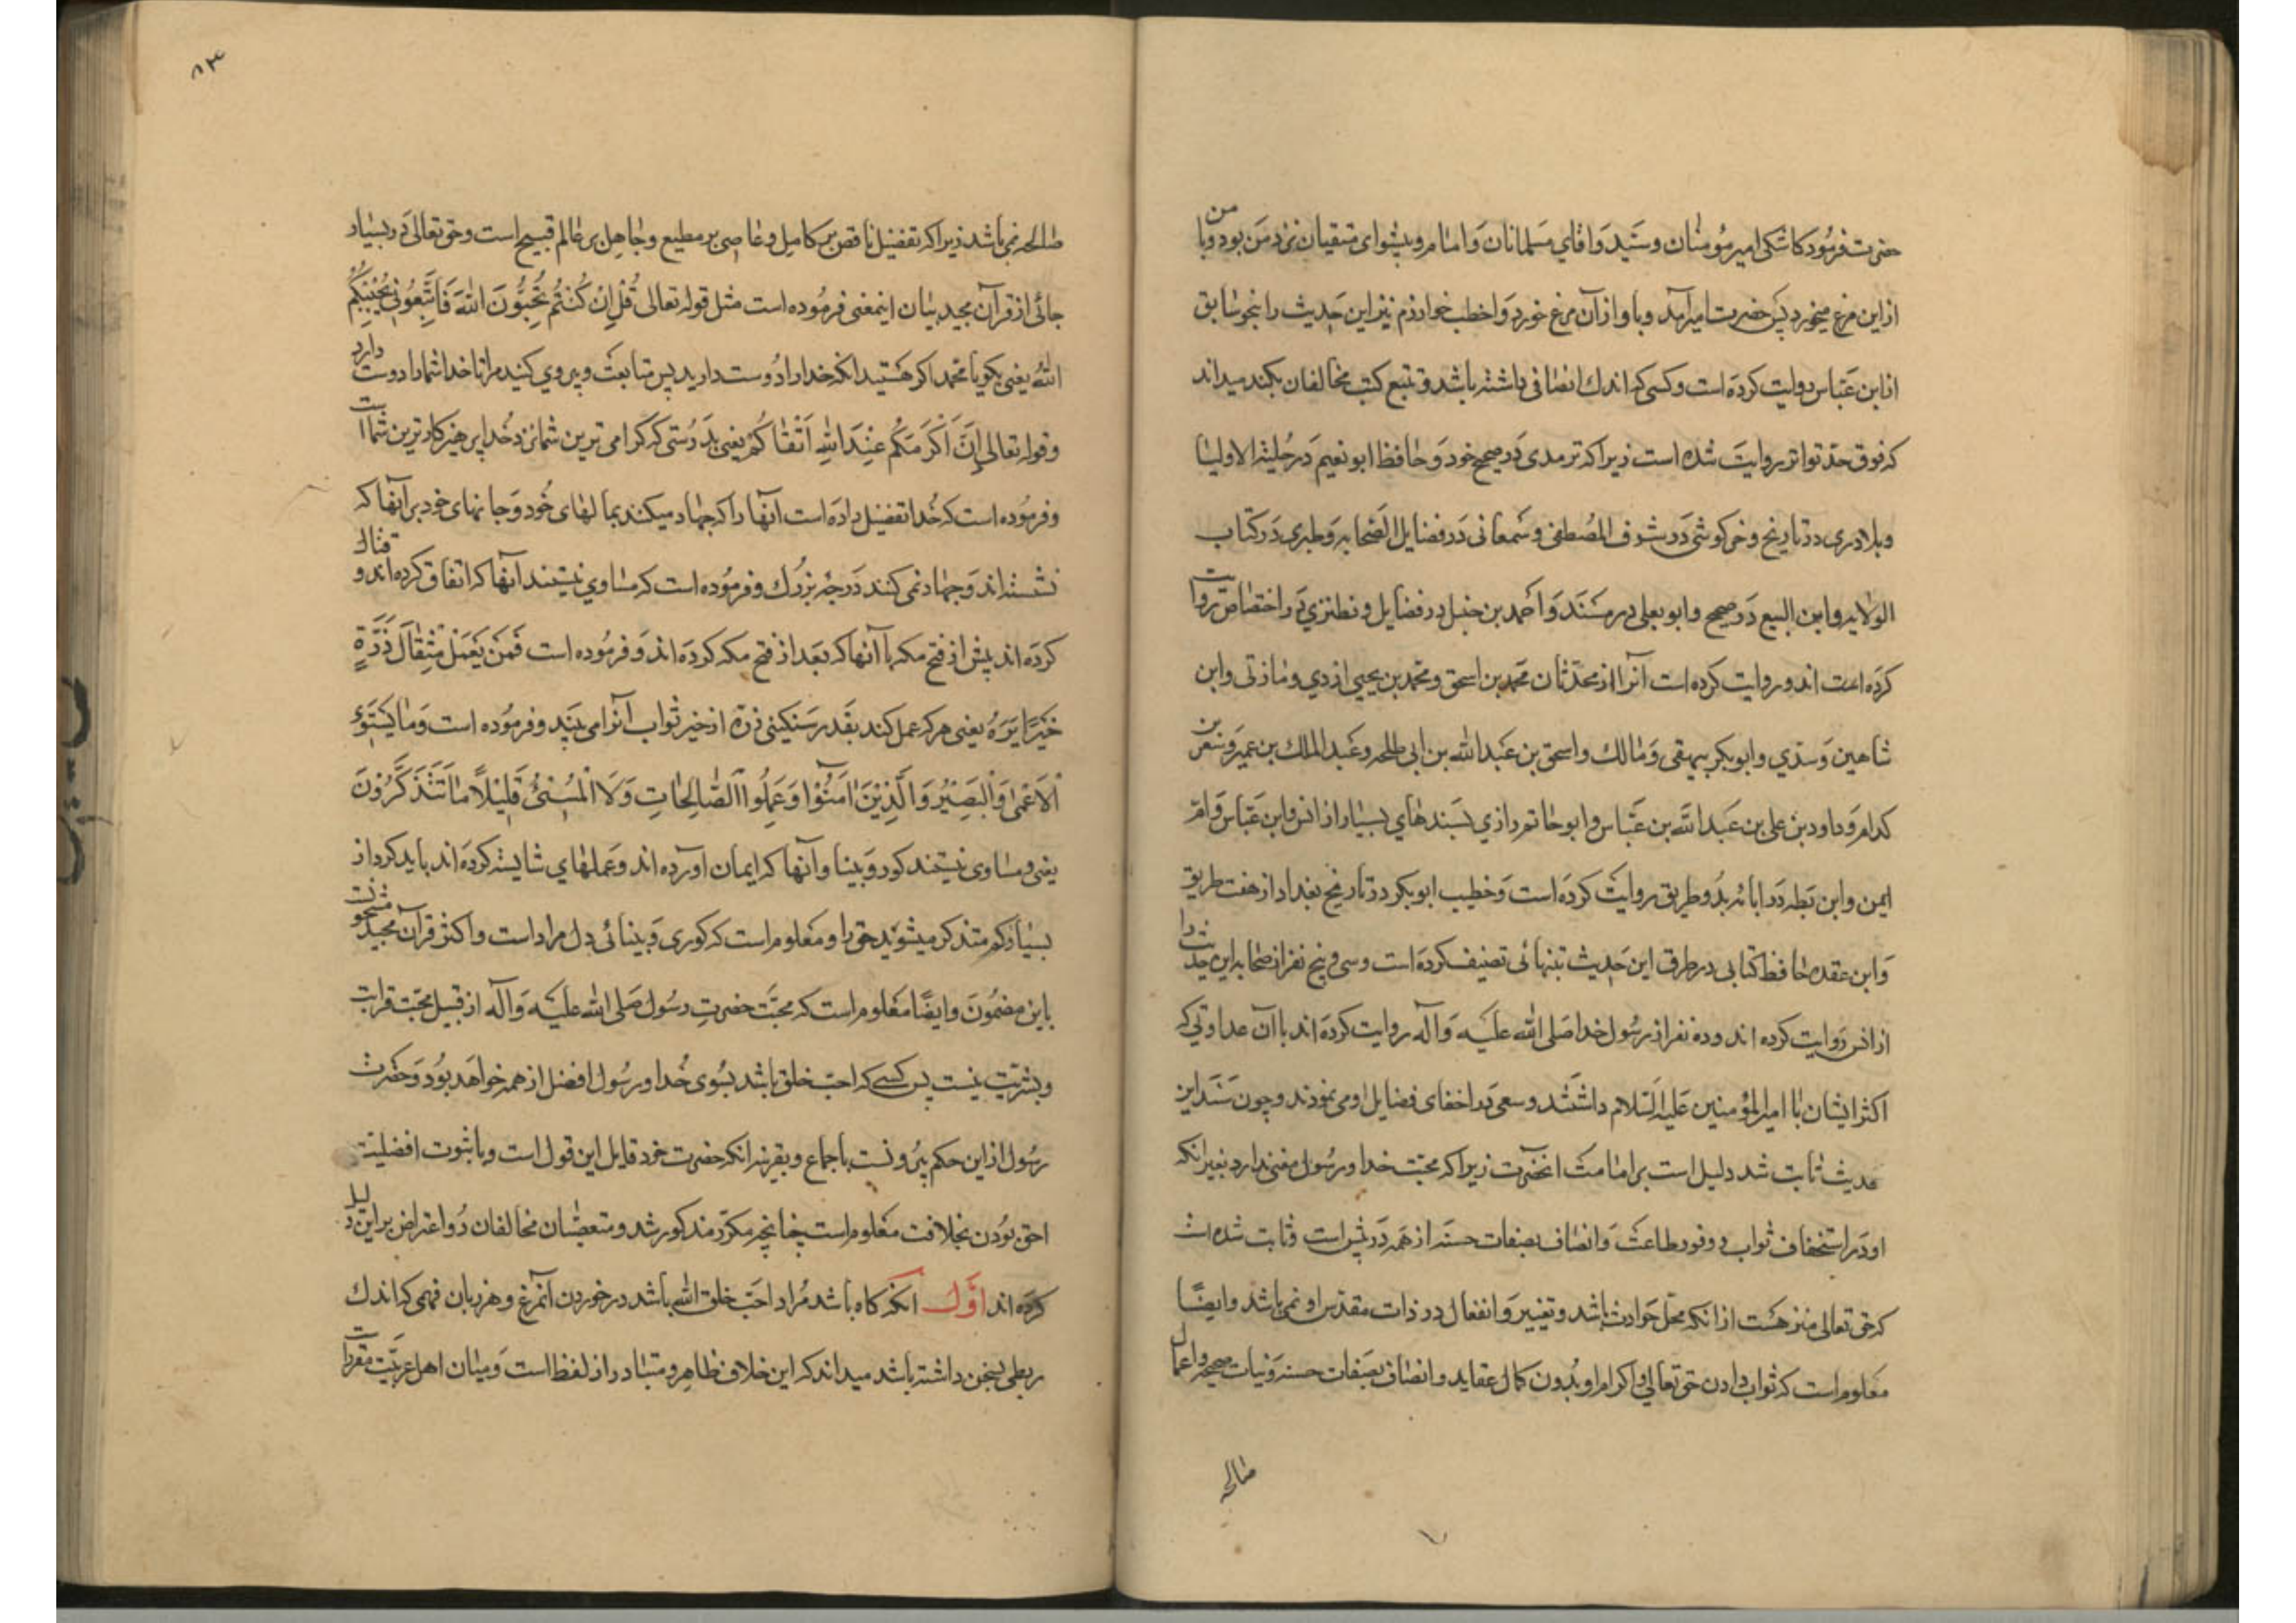 حضرت فرمود کاشکی امیر مؤمنان و سید و اقای مسلمانان و امام و پیشوای متقیان نزد من بود و با من
از این مرغ میخورد پس حضرت امیر آمد و با او از آن مرغ خورد و اخطب خوارزم نیز این حدیث را بنحو سابق
از ابن عباس روایت کرده است و کسی که اندك انصافی داشته باشد و تتبع کتب مخالفان بکند میداند
که فوق حد تواتر روایت شده است زیرا که ترمدی در صحیح خود و حافظ ابو نعیم در حلیته الاولیا
و بلادری در تاریخ و خرکوشی در شرف المصطفی و سمعانی در فضایل الصحابه و طبری در کتاب
الولایه و ابن البیع در صحیح و ابو یعلی در مسند و احمد بن حنبل در فضایل و نطنزی در اختصاص روایت
کرده است اند و روایت کرده است آنرا از محدثان محمد بن اسحق و محمد بن یحیی ازدی و مازنی و ابن
شاهین و سدی و ابو بکر بیهقی و مالك و اسحق بن عبد الله بن ابی طلحه و عبد الملك بن عمیر و مسعر بن
کدام و داود بن علی بن عبد الله بن عباس و ابو حاتم رازی بسندهای بسیار از انس و ابن عباس و ام
ایمن و ابن بطه در ابانه بدو طریق روایت کرده است و خطیب ابو بکر در تاریخ بغداد از هفت طریق
و ابن عقده حافظ کتابی در طرق این حدیث تنهائی تصنیف کرده است و سی و پنج نفر از صحابه این حدیث را
از انس روایت کرده اند و ده نفر از رسول خدا صلی الله علیه و آله روایت کرده اند با آن عداوتی که
اکثر ایشان با امیر المؤمنین علیه السلام داشتند و سعی در اخفای فضایل او می نمودند و چون سند این
حدیث ثابت شد دلیل است بر امامت انحضرت زیرا که محبت خدا و رسول معنی ندارد بغیر انکه
او در استحقاف ثواب و وفور طاعت و اتصاف بصفات حسنه از همه در پیش است و ثابت شده است
که حق تعالی منزهست از انکه محل حوادث باشد و تغییر و انفعال در ذات مقدس او نمی باشد و ایضًا
معلوم است که ثواب دادن حق تعالی و اکرام او بدون کمال عقاید و اتصاف بصفات حسنه و نیات صحیحه و اعمال
صالحه
۸۳
صالحه نمی باشد زیرا که تفضیل ناقص بر کامل و عاصی بر مطیع و جاهل بر عالم قبیح است و حق تعالی در بسیار
جائی از قرآن مجید بیان اینمعنی فرموده است مثل قوله تعالی قُلْ اِنْ کُنْتُمْ تُحِبُّونَ اللهَ فَاتَّبِعُونِی یُحْبِبْکُمُ
اللهُ یعنی بکو یا محمد اکر هستید انکه خدا را دوست دارید پس متابعت و پیروی کنید مرا تا خدا شما را دوست دارد
و قوله تعالی اِنَّ اَکْرَمَکُمْ عِنْدَ اللهِ اَتْقَاکُمْ یعنی بدرستی که کرامی ترین شما نزد خدا پرهیزکارترین شما است
و فرموده است که خدا تفضیل داده است آنها را که جهاد میکنند بمالهای خود و جانهای خود بر آنها که
نشسته اند و جهاد نمی کنند درجه بزرك و فرموده است که مساوی نیستند آنها که اتفاق کرده اند و قتال
کرده اند پیش از فتح مکه با آنها که بعد از فتح مکه کرده اند و فرموده است فَمَنْ یَعْمَلْ مِثْقَالَ ذَرَّةٍ
خَیْرًا یَرَهُ یعنی هرکه عمل کند بقدر سنکینی ذره از خیر ثواب آنرا می بیند و فرموده است وَمَا یَسْتَوِی
الْاَعْمٰی وَالْبَصِیْرُ وَالَّذِیْنَ اٰمَنُوْا وَعَمِلُوا الصَّالِحَاتِ وَلَا الْمُسِئُ قَلِیْلًا مَا تَتَذَکَّرُوْنَ
یعنی و مساوی نیستند کور و بینا و آنها که ایمان آورده اند و عملهای شایسته کرده اند با بد کردار
بسیار کم متذکر میشوید حق را و معلوم است که کوری و بینائی دل مراد است و اکثر قرآن مجید مشحونست
باین مضمون و ایضًا معلوم است که محبت حضرت رسول صلی الله علیه و آله از قبیل محبت قرابت
و بشریت نیست پس کسی که احب خلق باشد بسوی خدا و رسول افضل از همه خواهد بود و حضرت
رسول از این حکم بیرونست باجماع و بقرینه انکه حضرت خود قایل این قول است و با ثبوت افضلیت
احق بودن بخلافت معلوم است چنانچه مکرر مذکور شد و متعصبان مخالفان دو اعتراض بر این دلیل
کرده اند اوّل انکه کاه باشد مراد احب خلق الله باشد در خوردن آنمرغ و هر زبان فهمی که اندك
ربطی بسخن داشته باشد میداند که این خلاف ظاهر و متبادر از لفظ است و میان اهل عربیت مقررات